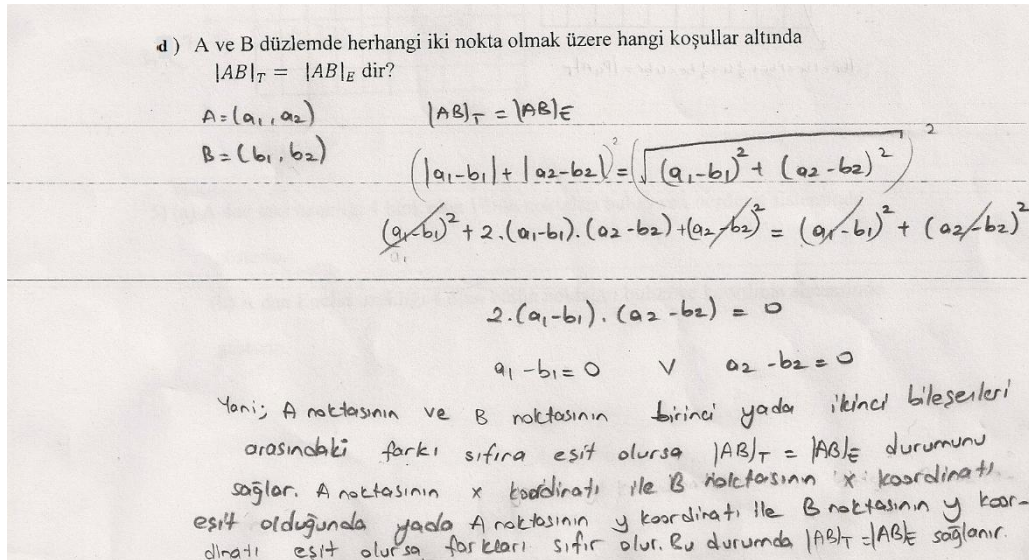 d) A ve B düzlemde herhangi iki nokta olmak üzere hangi koşullar altında
|AB|T = |AB|E dir?
A=(a1, a2) |AB|T = |AB|E
B=(b1, b2)
(|a1-b1| + |a2-b2|)² = (√(a1-b1)² + (a2-b2)²)²
(a1-b1)² + 2.(a1-b1).(a2-b2) + (a2-b2)² = (a1-b1)² + (a2-b2)²
2.(a1-b1).(a2-b2) = 0
a1-b1=0 V a2-b2=0
Yani; A noktasının ve B noktasının birinci yada ikinci bileşenleri
arasındaki farkı sıfıra eşit olursa |AB|T = |AB|E durumunu
sağlar. A noktasının x koordinatı ile B noktasının x koordinatı
eşit olduğunda yada A noktasının y koordinatı ile B noktasının y koor-
dinatı eşit olursa farkları sıfır olur. Bu durumda |AB|T = |AB|E sağlanır.